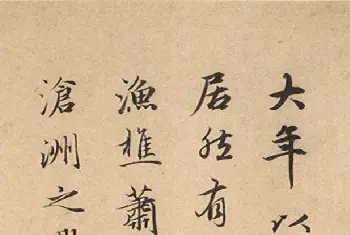 大年
居然有
漁樵蕭
滄洲之